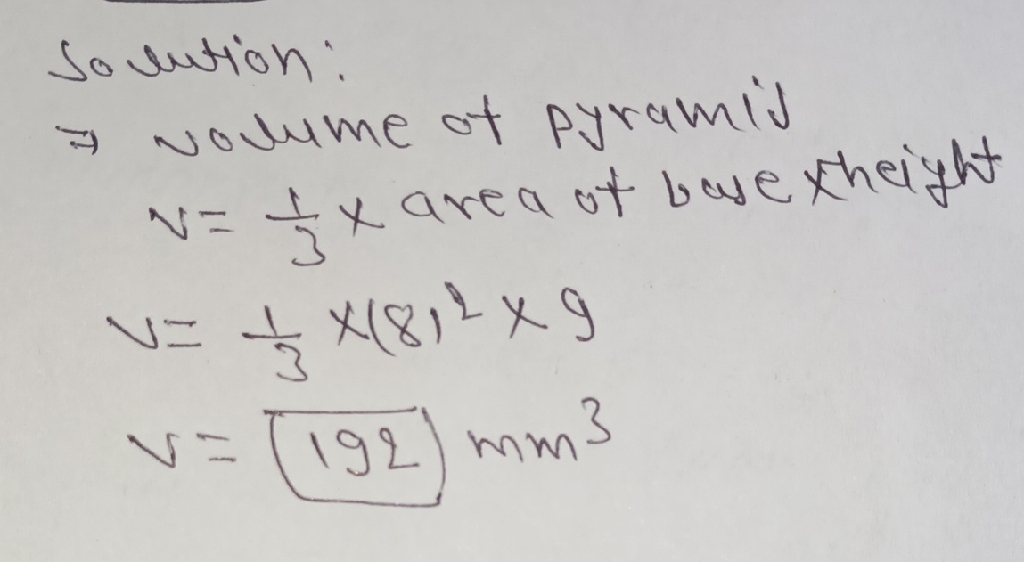 Solution:
⇒ volume of pyramid
V= 1/3 x area of base x height
V= 1/3 x(8)² x 9
V= 192 mm³